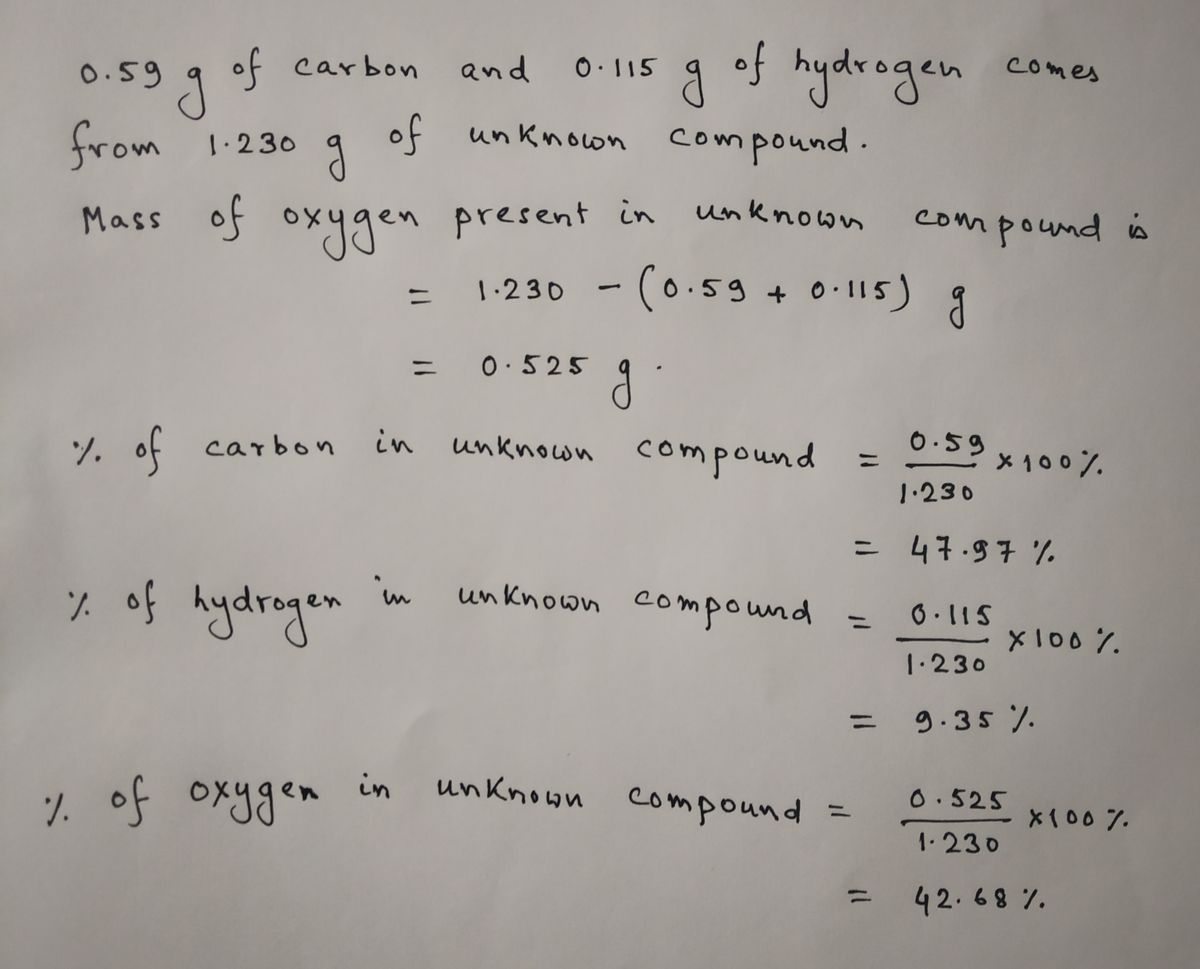 0.59 g of carbon and 0.115 g of hydrogen comes
from 1.230 g of unknown compound.
Mass of oxygen present in unknown compound is
= 1.230 - (0.59 + 0.115) g
= 0.525 g.
% of carbon in unknown compound = 0.59/1.230 × 100%
= 47.97 %
% of hydrogen in unknown compound = 0.115/1.230 × 100 %
= 9.35 %
% of oxygen in unknown compound = 0.525/1.230 × 100 %
= 42.68 %